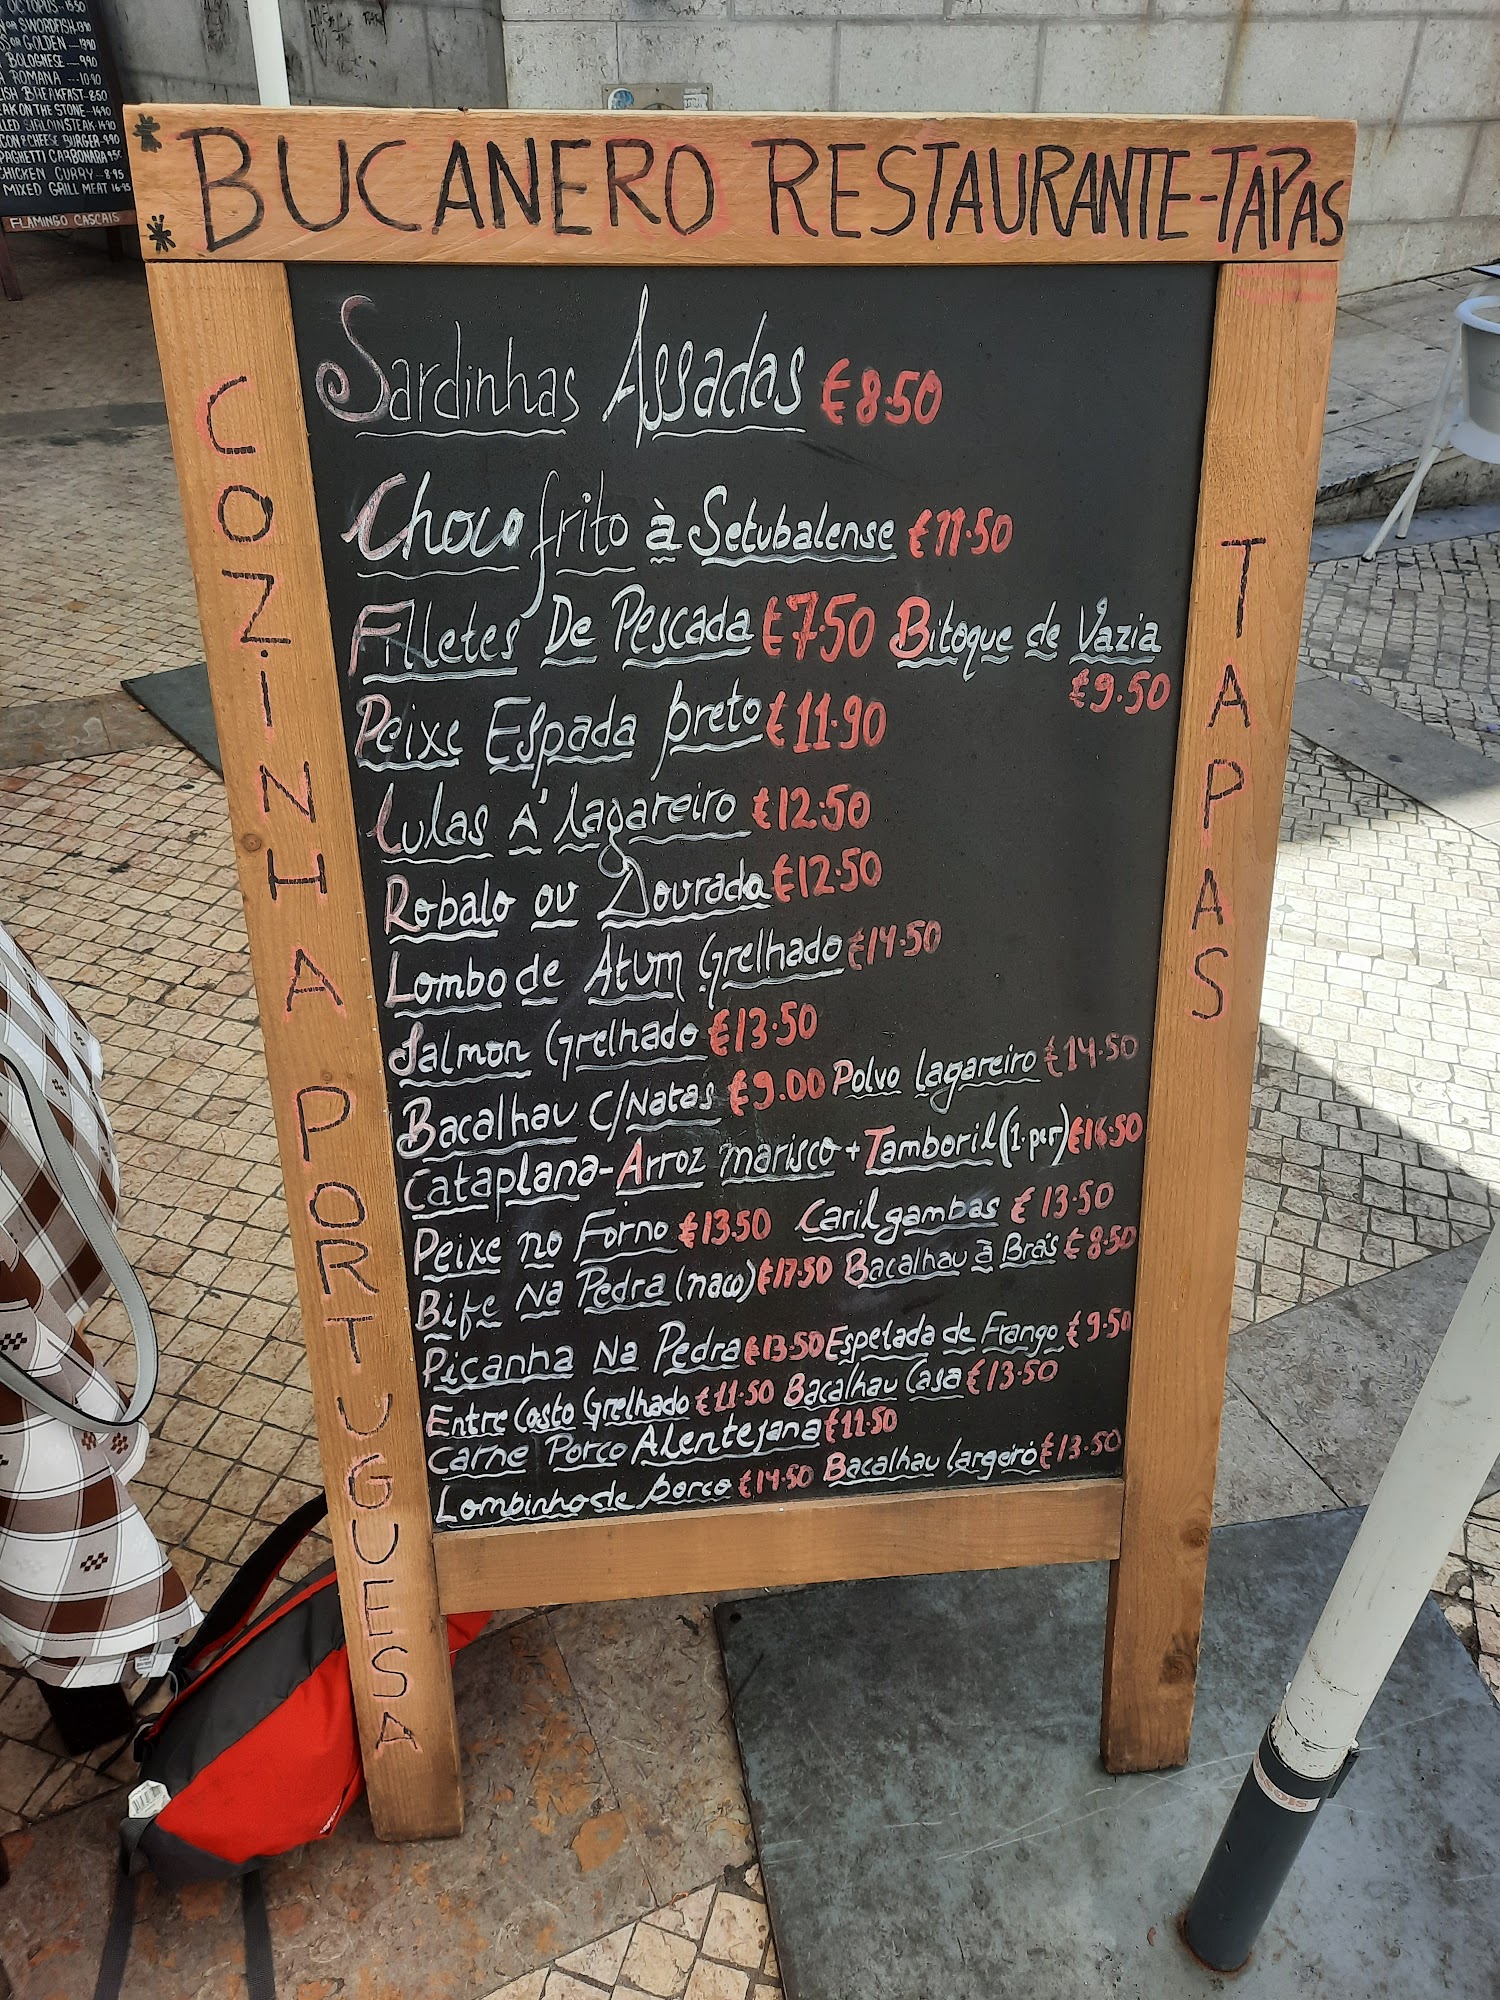 OCTOPUS--15.50
SWORDFISH 13.90
GOLDEN ---13.90
BOLOGNESE ---9.90
ROMANA ---10.90
BREAKFAST-8.50
ON THE STONE-14.90
SIRLOIN STEAK-14.90
CHEESE BURGER-9.90
SPAGHETTI CARBONARA 9.50
CHICKEN CURRY-8.95
MIXED GRILL MEAT 16.95
FLAMINGO CASCAIS
BUCANERO RESTAURANTE-TAPAS
COZINHA PORTUGUESA
Sardinhas Assadas €8.50
Choco frito à Setubalense €11.50
Filletes De Pescada €7.50 Bitoque de Vazia
€9.50
Peixe Espada preto €11.90
Lulas A' lagareiro €12.50
Robalo ou Dourada €12.50
Lombo de Atum Grelhado €14.50
Salmon Grelhado €13.50
Bacalhau C/Natas €9.00 Polvo Lagareiro €14.50
Cataplana-Arroz marisco + Tamboril (1.per) €16.50
Peixe no Forno €13.50 Caril gambas €13.50
Bife Na Pedra (naco) €17.50 Bacalhau à Brás €8.50
Picanha Na Pedra €13.50 Espetada de Frango €9.50
Entre Costo Grelhado €11.50 Bacalhau Casa €13.50
Carne Porco Alentejana €11.50
Lombinho de porco €14.50 Bacalhau largeiró €13.50
TAPAS